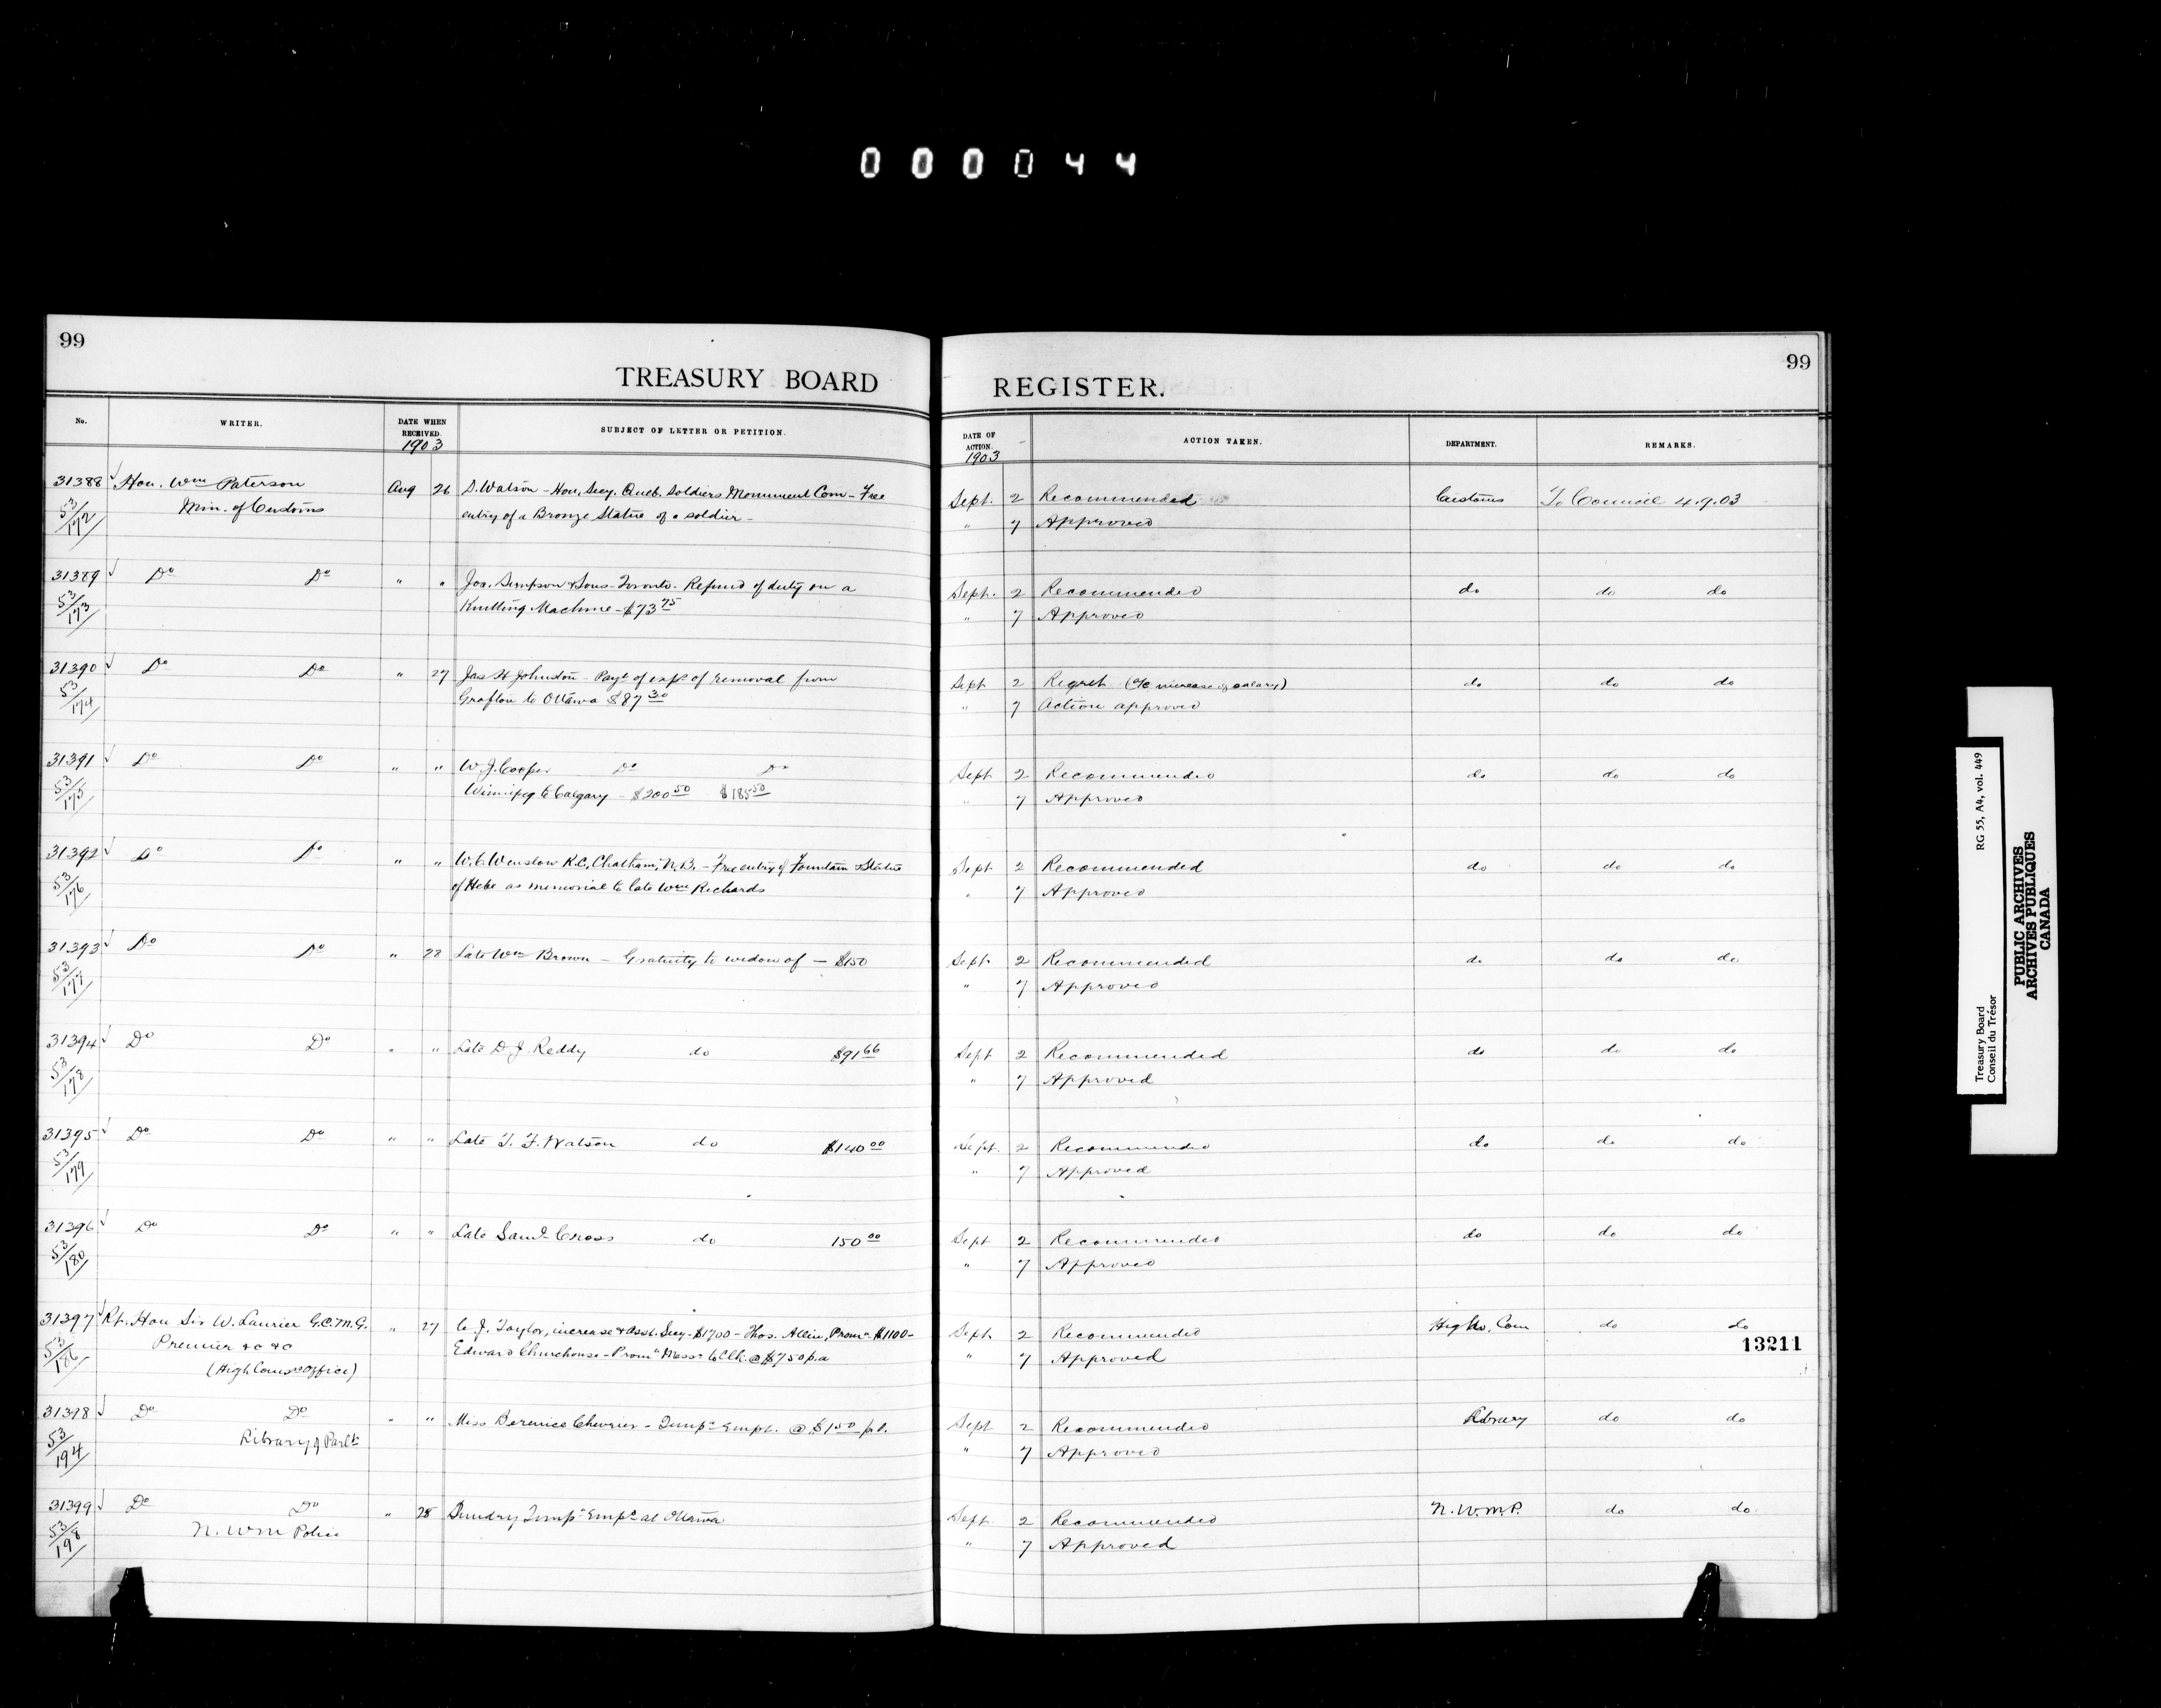 000044
99
TREASURY BOARD
No.
WRITER.
DATE WHEN RECEIVED.
1903
SUBJECT OF LETTER OR PETITION.
31388 Hon. Wm Paterson Aug 26 S. Watson - Hon. Secy. Queb. Soldiers Monument Com - Free
53/172 Min. of Customs entry of a Bronze Statue of a soldier -
31389 Do Do " " Jos. Simpson & Sons - Toronto. Refund of duty on a
53/173 Knitting Machine - $73 75
31390 Do Do " 27 Jas H Johnston - Payt of exps of removal from
53/174 Grafton to Ottawa $87 30
31391 Do Do " " W. J. Cooper Do Do
53/175 Winnipeg to Calgary - $200 50 $185 50
31392 Do Do " " W. C. Winslow K.C., Chatham, N.B. - Free entry of Fountain & Statue
53/176 of Hebe as memorial to late Wm Richards
31393 Do Do " 28 Late Wm Brown - Gratuity to widow of - $150
53/177
31394 Do Do " " Late D. J. Reddy do $91 66
53/178
31395 Do Do " " Late T. F. Watson do $140 00
53/179
31396 Do Do " " Late Saml Cross do 150 00
53/180
31397 Rt. Hon Sir W. Laurier G.C.M.G. " 27 C. J. Taylor, increase & Asst. Secy - $1700 - Thos. Allin, Promn $1100 -
53/186 Premier &c &c Edward Churchouse - Promn Messr to Clk. @ $750 p.a
(High Comrs Office)
31398 Do Do " " Miss Berenice Chevrier - Tempy Empt. @ $1.50 p.d.
53/194 Library of Parlt
31399 Do Do " 28 Sundry Tempy Emps at Ottawa
53/198 N. W m Police
99
REGISTER.
DATE OF ACTION.
1903
ACTION TAKEN.
DEPARTMENT.
REMARKS.
Sept. 2 Recommended Customs To Council 4.9.03
" 7 Approved
Sept. 2 Recommended do do do
" 7 Approved
Sept 2 Regret (a/c increase of salary) do do do
" 7 Action approved
Sept 2 Recommended do do do
" 7 Approved
Sept 2 Recommended do do do
" 7 Approved
Sept. 2 Recommended do do do
" 7 Approved
Sept 2 Recommended do do do
" 7 Approved
Sept. 2 Recommended do do do
" 7 Approved
Sept 2 Recommended do do do
" 7 Approved
Sept. 2 Recommended High. Com do do
" 7 Approved
13211
Sept 2 Recommended Library do do
" 7 Approved
Sept. 2 Recommended N.W.M.P. do do
" 7 Approved
Treasury Board
Conseil du Trésor
RG 55, A4, vol. 449
PUBLIC ARCHIVES
ARCHIVES PUBLIQUES
CANADA